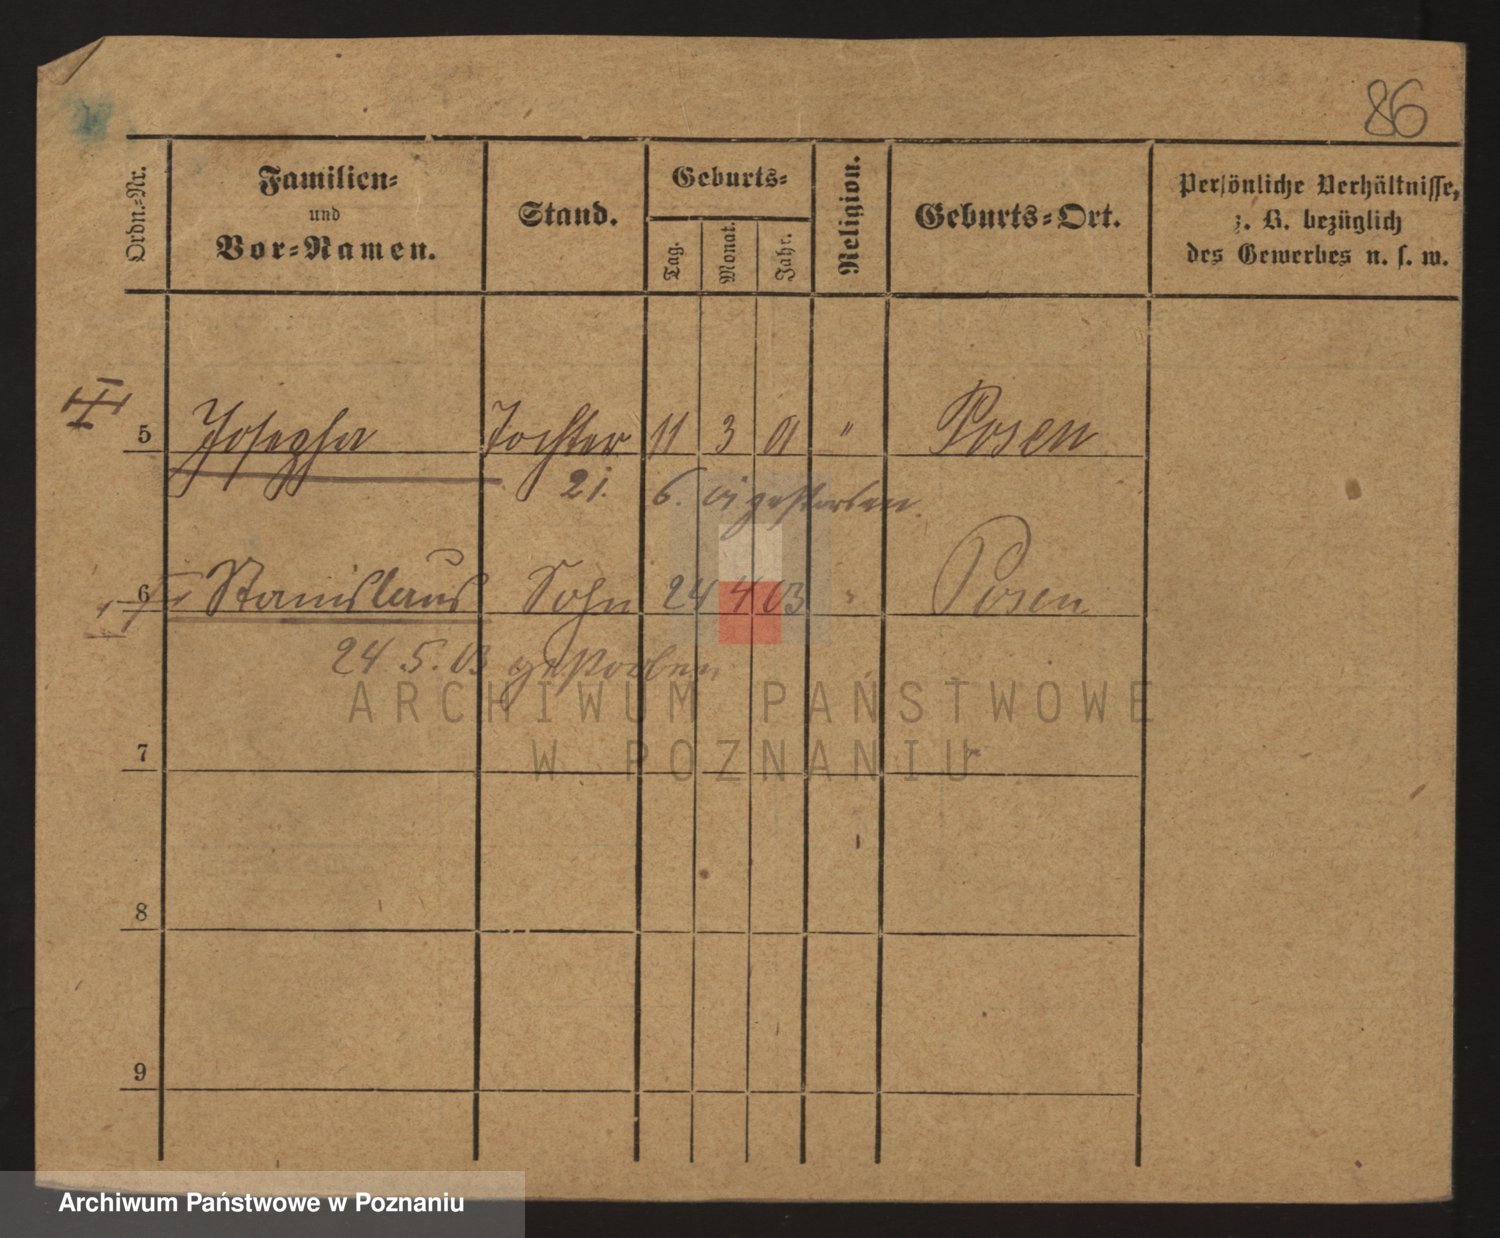 86
Ordn.-Nr.
Familien-
und
Vor-Namen.
Stand.
Geburts-
Tag.
Monat.
Jahr.
Religion.
Geburts-Ort.
Persönliche Verhältnisse,
z. B. bezüglich
des Gewerbes u. s. w.
5 Josepha Tochter 11 3 01 " Posen
21. 6. 01 gestorben.
6 Stanislaus Sohn 24 4 03 " Posen
24. 5. 03 gestorben
ARCHIWUM PAŃSTWOWE
W POZNANIU
7
8
9
Archiwum Państwowe w Poznaniu